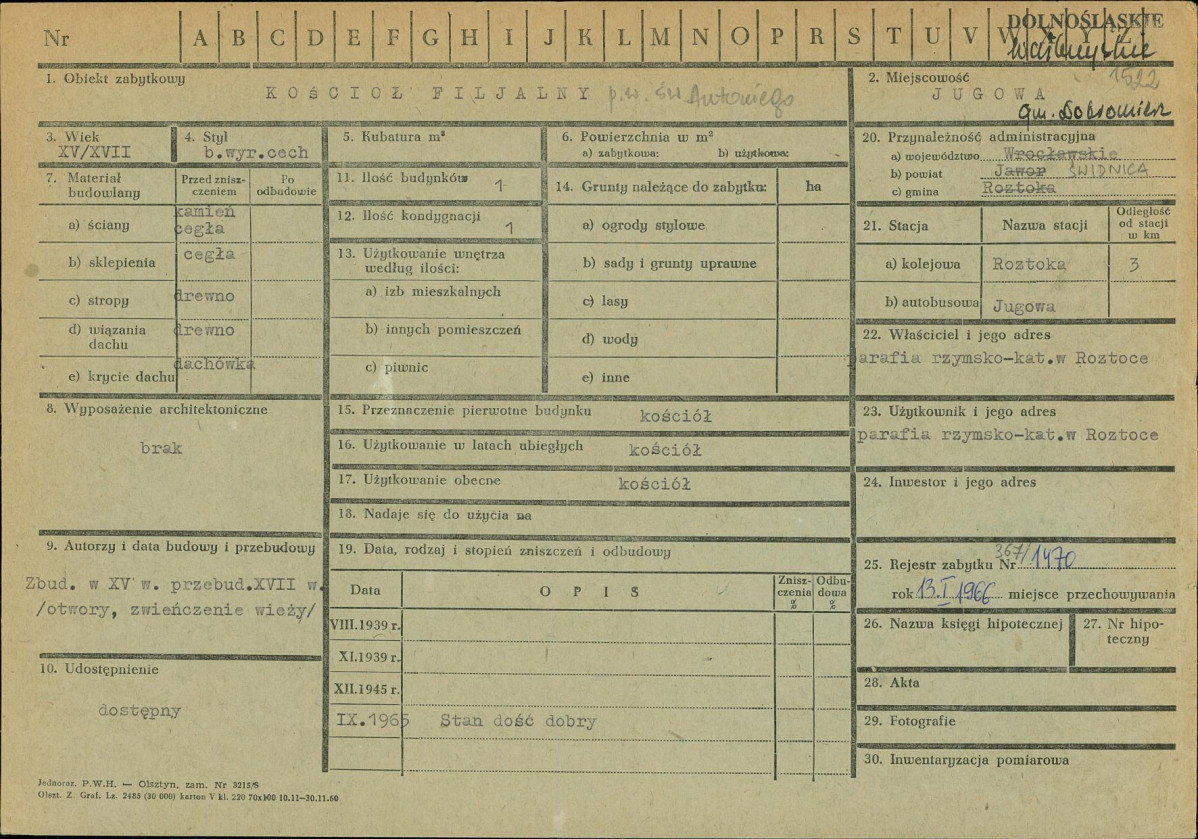 Nr A B C D E F G H I J K L M N O P R S T U V W X Y Z
DOLNOŚLĄSKIE
1522
1. Obiekt zabytkowy
KOŚCIOŁ FILJALNY p.w. św Antoniego
2. Miejscowość
JUGOWA
gm. Dobromierz
3. Wiek
XV/XVII
4. Styl
b.wyr.cech
5. Kubatura m³
6. Powierzchnia w m²
a) zabytkowa: b) użytkowa:
7. Materiał budowlany
Przed zniszczeniem
Po odbudowie
a) ściany kamień cegła
b) sklepienia cegła
c) stropy drewno
d) wiązania dachu drewno
e) krycie dachu dachówka
8. Wyposażenie architektoniczne
brak
9. Autorzy i data budowy i przebudowy
Zbud. w XV w. przebud.XVII w.
/otwory, zwieńczenie wieży/
10. Udostępnienie
dostępny
11. Ilość budynków 1
12. Ilość kondygnacji 1
13. Użytkowanie wnętrza według ilości:
a) izb mieszkalnych
b) innych pomieszczeń
c) piwnic
14. Grunty należące do zabytku: ha
a) ogrody stylowe
b) sady i grunty uprawne
c) lasy
d) wody
e) inne
15. Przeznaczenie pierwotne budynku kościół
16. Użytkowanie w latach ubiegłych kościół
17. Użytkowanie obecne kościół
18. Nadaje się do użycia na
19. Data, rodzaj i stopień zniszczeń i odbudowy
Data OPIS Zniszczenia % Odbudowa %
VIII.1939 r.
XI.1939 r.
XII.1945 r.
IX.1965 Stan dość dobry
20. Przynależność administracyjna
a) województwo Wrocławskie
b) powiat Jawor ŚWIDNICA
c) gmina Roztoka
21. Stacja Nazwa stacji Odległość od stacji w km
a) kolejowa Roztoka 3
b) autobusowa Jugowa
22. Właściciel i jego adres
parafia rzymsko-kat.w Roztoce
23. Użytkownik i jego adres
parafia rzymsko-kat.w Roztoce
24. Inwestor i jego adres
25. Rejestr zabytku Nr 367/1470
rok 13.I 1966 miejsce przechowywania
26. Nazwa księgi hipotecznej
27. Nr hipoteczny
28. Akta
29. Fotografie
30. Inwentaryzacja pomiarowa
Jednoraz. P.W.H. — Olsztyn, zam. Nr 3215/S
Olszt. Z. Graf. Lz. 2485 (30 000) karton V kl. 220 70x100 10.11—30.11.60